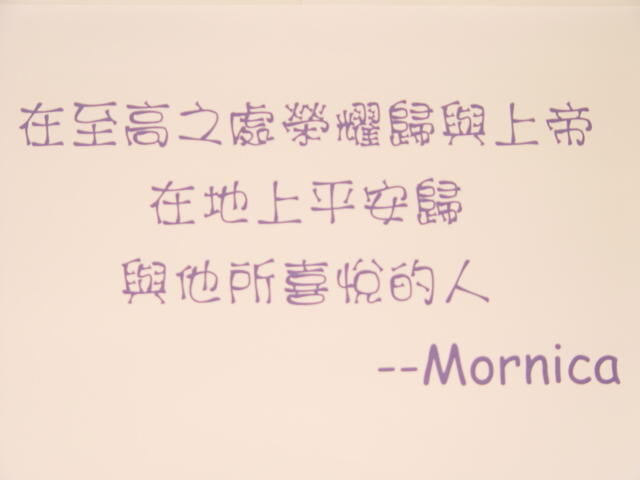 在至高之處榮耀歸與上帝
在地上平安歸
與他所喜悅的人
--Mornica